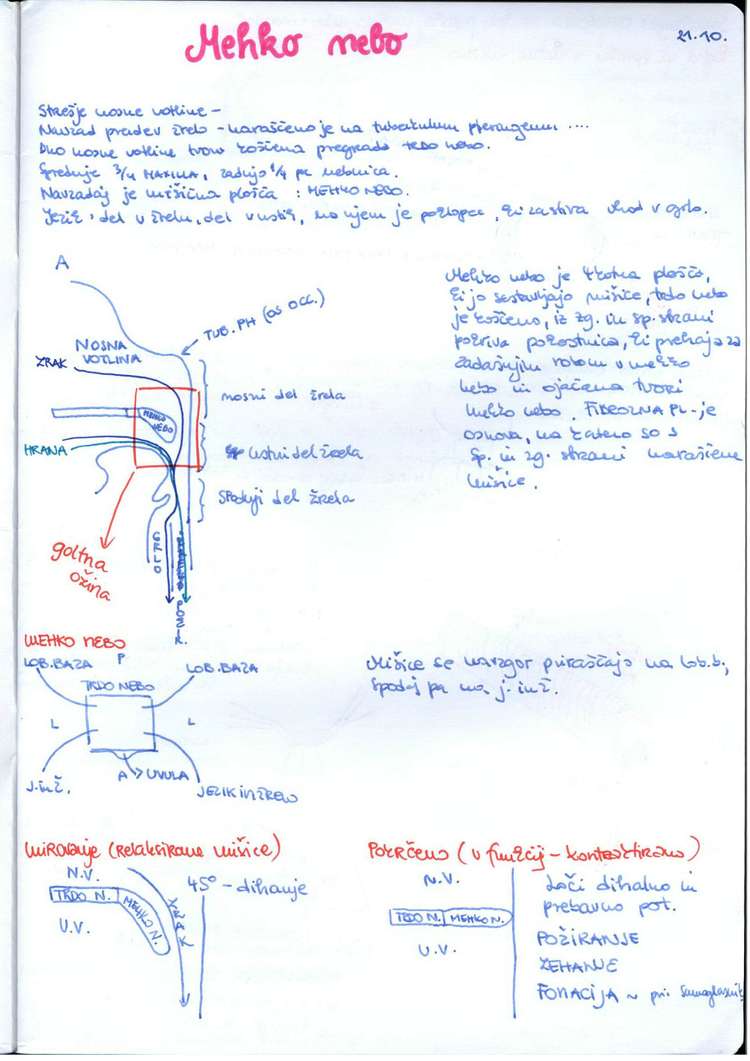 Mehko nebo
21.10.
Stresje nosne votline -
Navzad preidev žrelo - naraščeno je na tuberkulum pharingeum ....
Dno nosne votline tvori koščena pregrada TRDO NEBO.
Sprednje 3/4 MAXILLA, zadnjo 1/4 pa nebnica.
Navzadaj je mišična plošča : MEHKO NEBO.
Jezik, del v žrelu, del v ustih, na njem je poklopec, ki zastira vhod v grlo.
A
TUB. PH (OS OCC.)
NOSNA
VOTLINA
ZRAK
MEHKO
NEBO
HRANA
nosni del žrela
ustni del žrela
spodnji del žrela
GRLO
goltna
ožina
Mehko nebo je 4kotna plošča,
ki jo sestavljajo mišice, trdo nebo
je koščeno, iz zg. in sp. strani
pokriva pokostnica, ki prehaja za
zadajšnjim robom v mehko
nebo in ojačena tvori
mehko nebo. FIBROZNA PL - je
osnova, na katero so s
sp. in zg. strani naraščene
mišice.
MEHKO NEBO
LOB. BAZA
P
LOB. BAZA
TRDO NEBO
L
L
J. in Ž.
A
UVULA
JEZIK IN ŽRELO
Mišice se navzgor priraščajo na lob.b;
spodaj pa na j. in ž.
mirovanje (relaksirane mišice)
N.V.
TRDO N.
MEHKO N.
U.V.
ZRAK
45° - dihanje
Pokrčeno (v funkciji - kontaktirano)
N.V.
TRDO N. MEHKO N.
U.V.
Loči dihalno in
prebavno pot.
POŽIRANJE
ZEHANJE
FONACIJA ~ pri samoglasnik